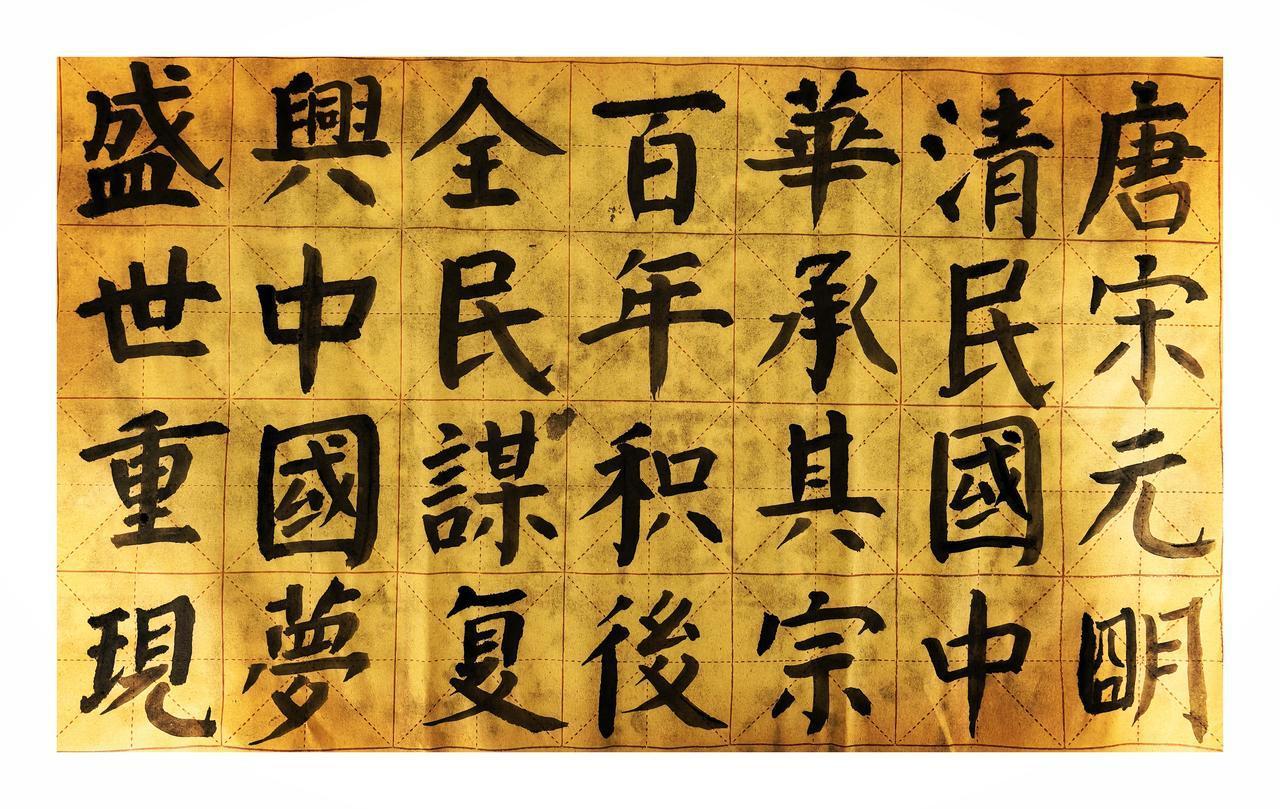 唐宋元明
清民國中
華承其宗
百年积後
全民謀复
興中國夢
盛世重現